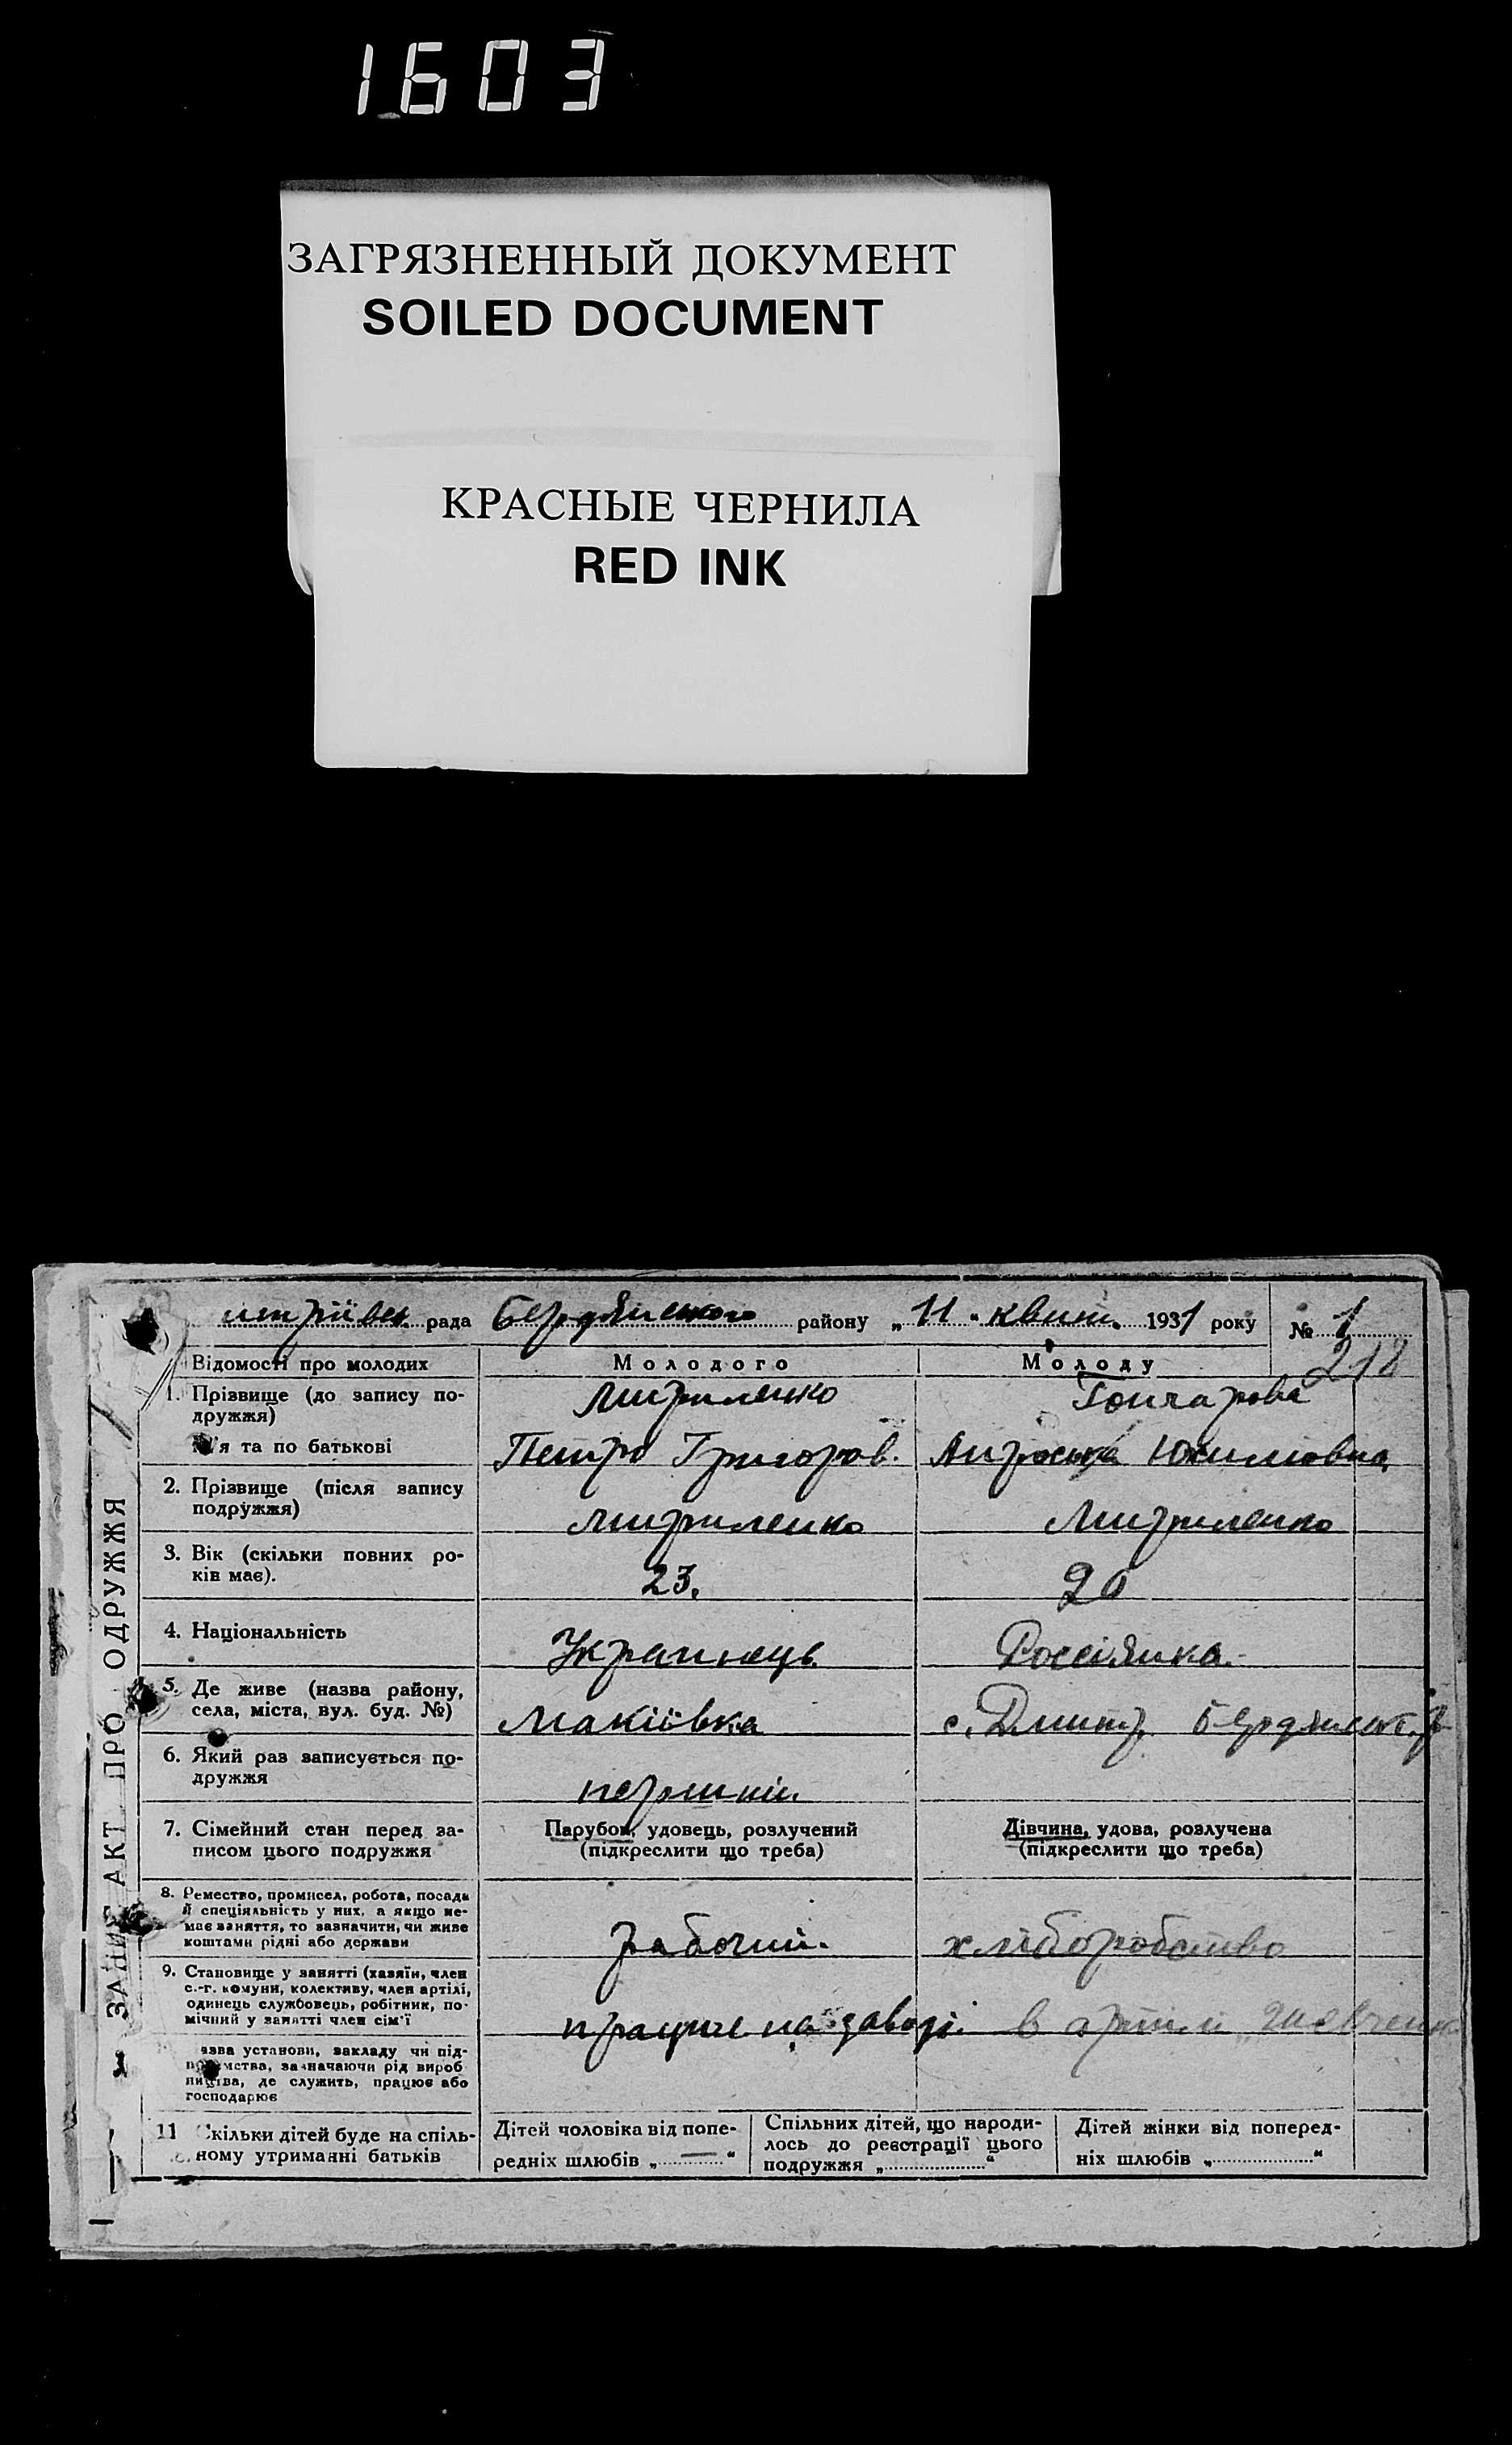 1603
ЗАГРЯЗНЕННЫЙ ДОКУМЕНТ
SOILED DOCUMENT
КРАСНЫЕ ЧЕРНИЛА
RED INK
рада Бердянського району „11“ квітн. 1931 року № 1
218
Відомості про молодих Молодого Молоду
1. Прізвище (до запису по-
дружжя) Мириленко Гончарова
м'я та по батькові Петро Григоров. Юхимовна
2. Прізвище (після запису
подружжя) Мириленко Мириленко
3. Вік (скільки повних ро-
ків має). 23. 20
4. Національність Украинець Россіянка.
5. Де живе (назва району,
села, міста, вул. буд. №) Макіївка с. Дмитр. Бердянськ. р
6. Який раз записується по-
дружжя перший
7. Сімейний стан перед за- Парубок, удовець, розлучений Дівчина, удова, розлучена
писом цього подружжя (підкреслити що треба) (підкреслити що треба)
8. Ремество, промисел, робота, посада
й спеціяльність у них, а якщо не-
має заняття, то зазначити, чи живе
коштами рідні або держави рабочий. хліборобство
9. Становище у занятті (хазяїн, член
с.-г. комуни, колективу, член артілі,
одинець службовець, робітник, по-
мічний у занятті член сім'ї працює на заводі в артілі „Шевченк
азва установи, закладу чи під-
приємства, зазначаючи рід вироб
ництва, де служить, працює або
господарює
11 Скільки дітей буде на спіль-
ному утриманні батьків
Дітей чоловіка від попе-
редніх шлюбів „ — “
Спільних дітей, що народи-
лось до реєстрації цього
подружжя „ “
Дітей жінки від поперед-
ніх шлюбів „ “
ЗАПИС АКТ ПРО ОДРУЖЖЯ